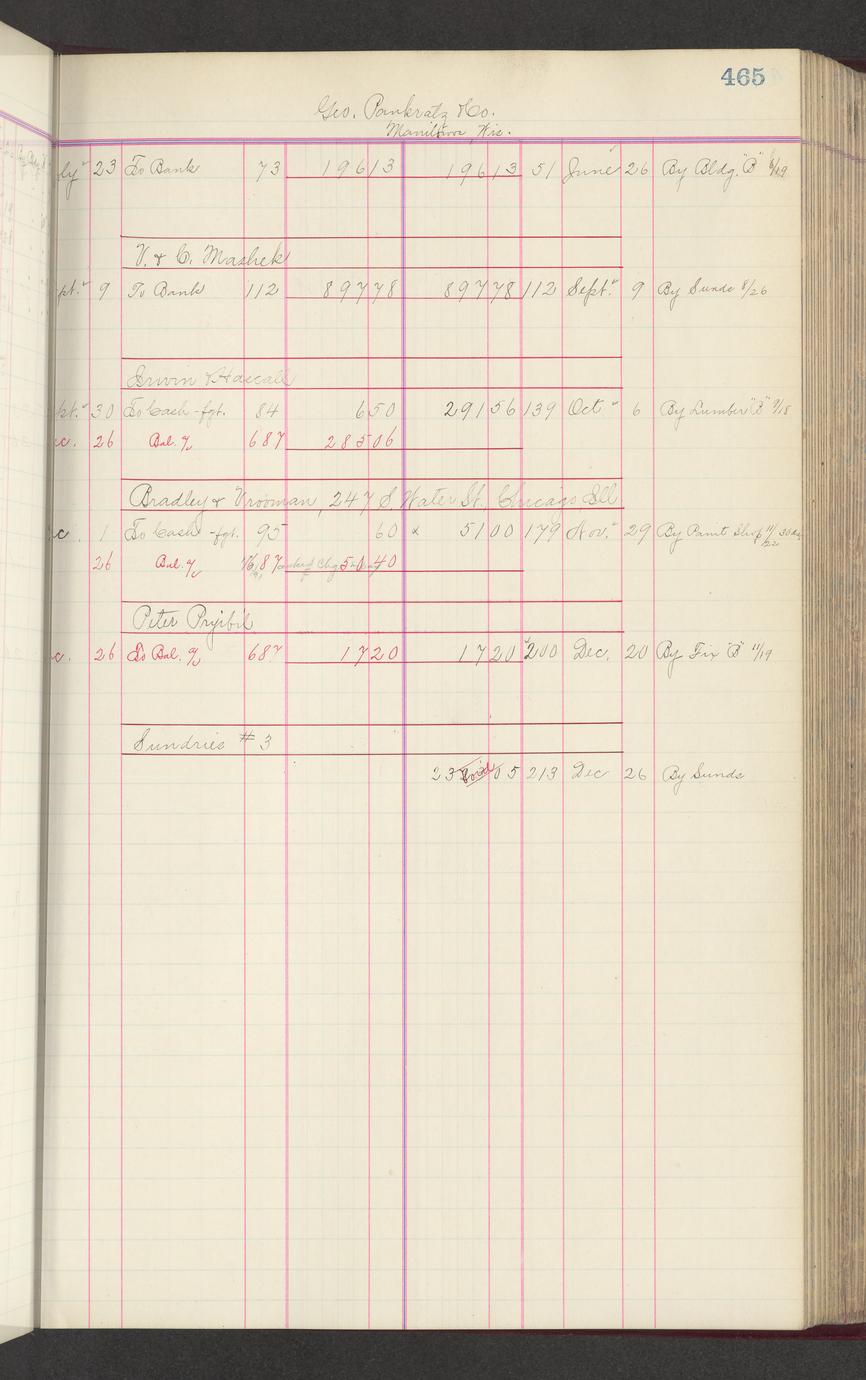 465
Geo. Pankratz & Co.
Manitowoc, Wis.
ly " 23 To Bank 73 196 13 196 13 51 June " 26 By Bldg. "B" 6/19
V. & C. Mashek
pt. " 9 To Bank 112 897 78 897 78 112 Sept. " 9 By Sunds 8/26
Irwin & Hascall
pt. " 30 To Cash - fgt. 84 6 50 291 56 139 Oct " 6 By Lumber "B" 9/18
c. 26 Bal. % 687 285 06
Bradley & Vrooman, 247 S. Water St. Chicago Ill
c. 1 To Cash - fgt. 95 60 x 51 00 179 Nov. " 29 By Paint Shop 11/22 30 ds
26 Bal. % 687 50 40
Peter Pryibil
c. 26 To Bal. % 687 17 20 17 20 200 Dec. 20 By Fix "B" 11/19
Sundries # 3
23 Void 05 213 Dec 26 By Sunds